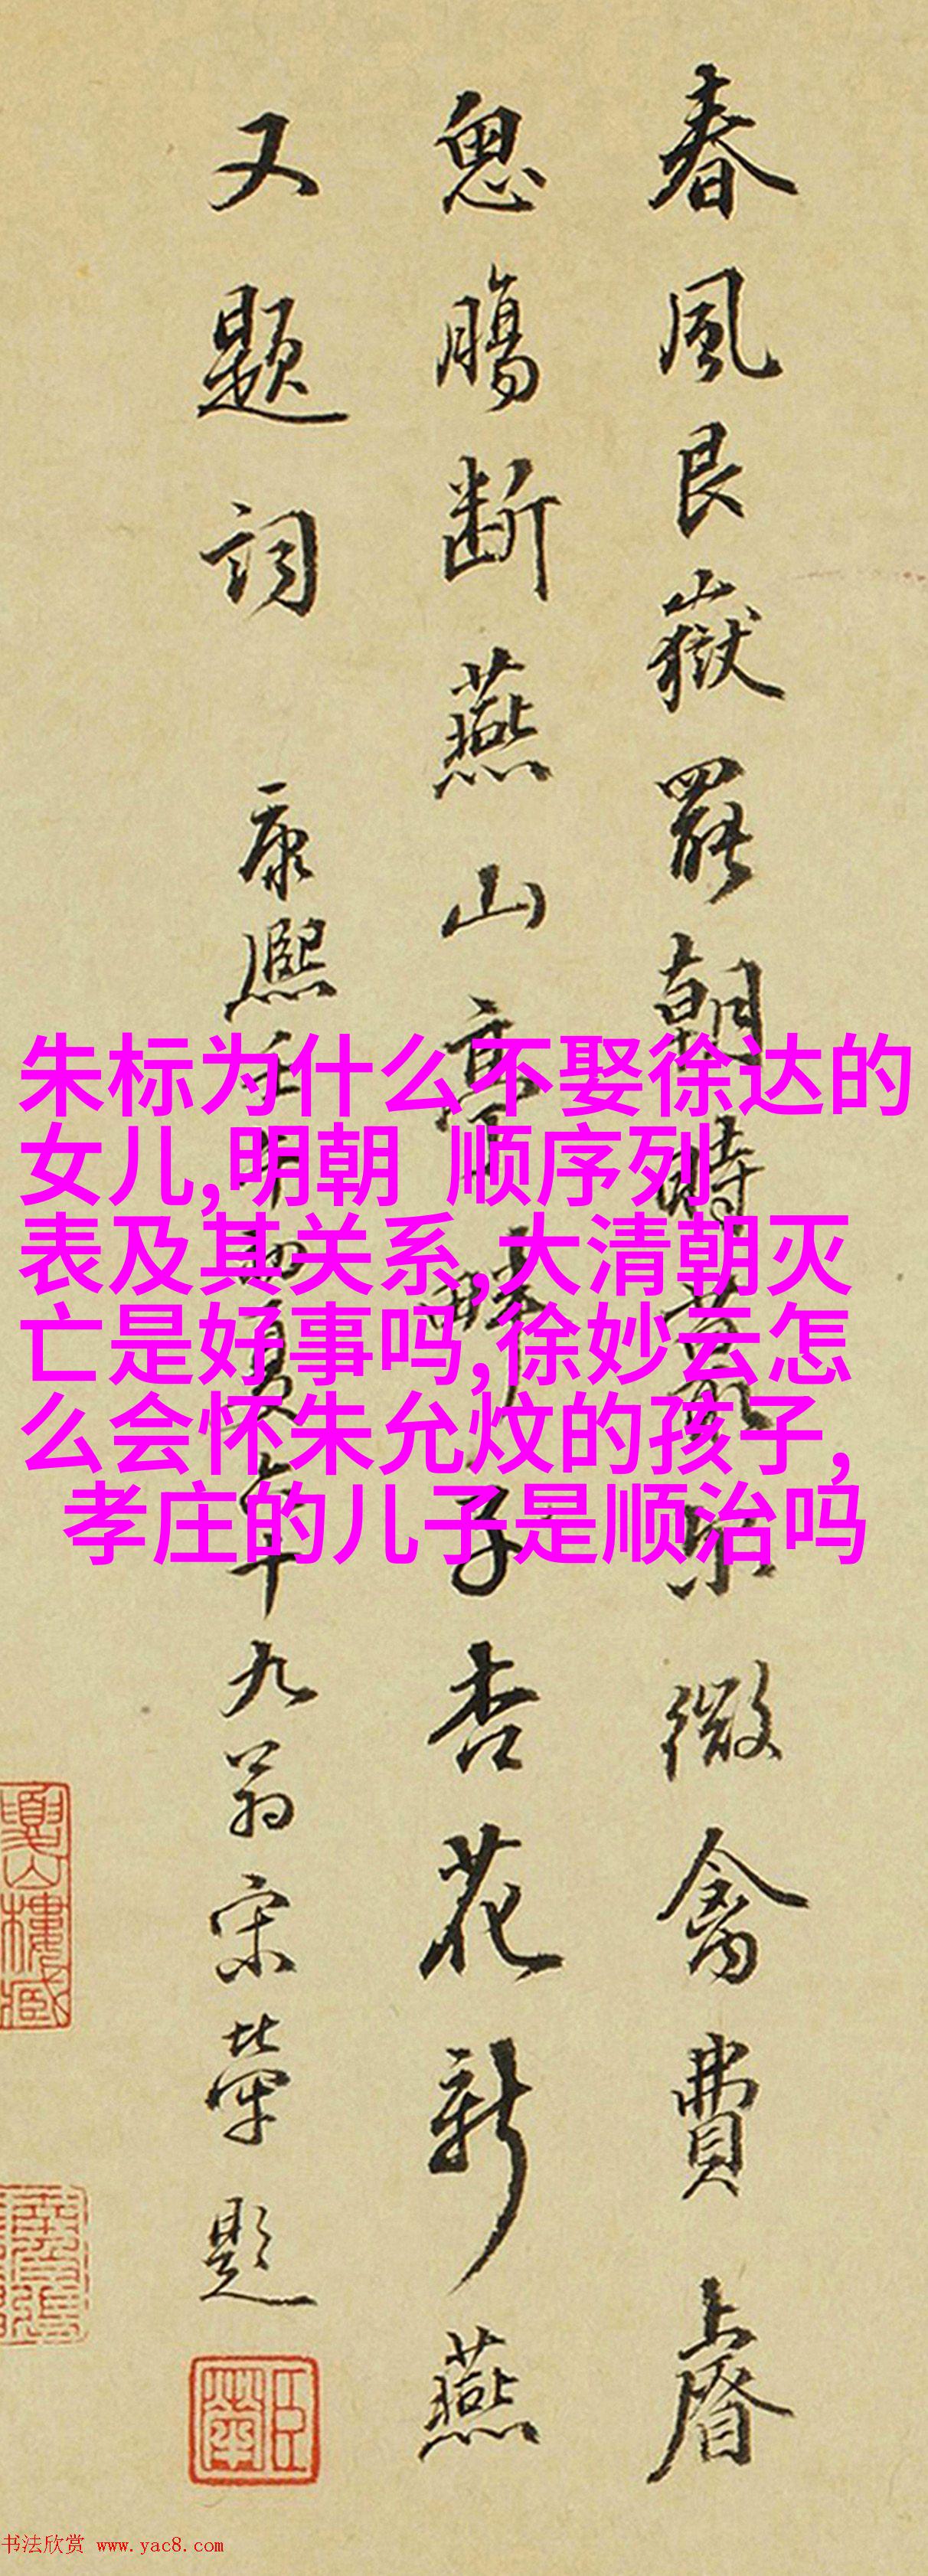 春風艮嶽罷朝時微禽費上睿
思腸斷燕山亭畔子杏花新燕
又題詞 康熙壬午初夏六十九翁宋犖題
臣犖
朱标为什么不娶徐达的
女儿,明朝 顺序列
表及其关系,大清朝灭
亡是好事吗,徐妙云怎
么会怀朱允炆的孩子,
孝庄的儿子是顺治吗
书法欣赏 www.yac8.com